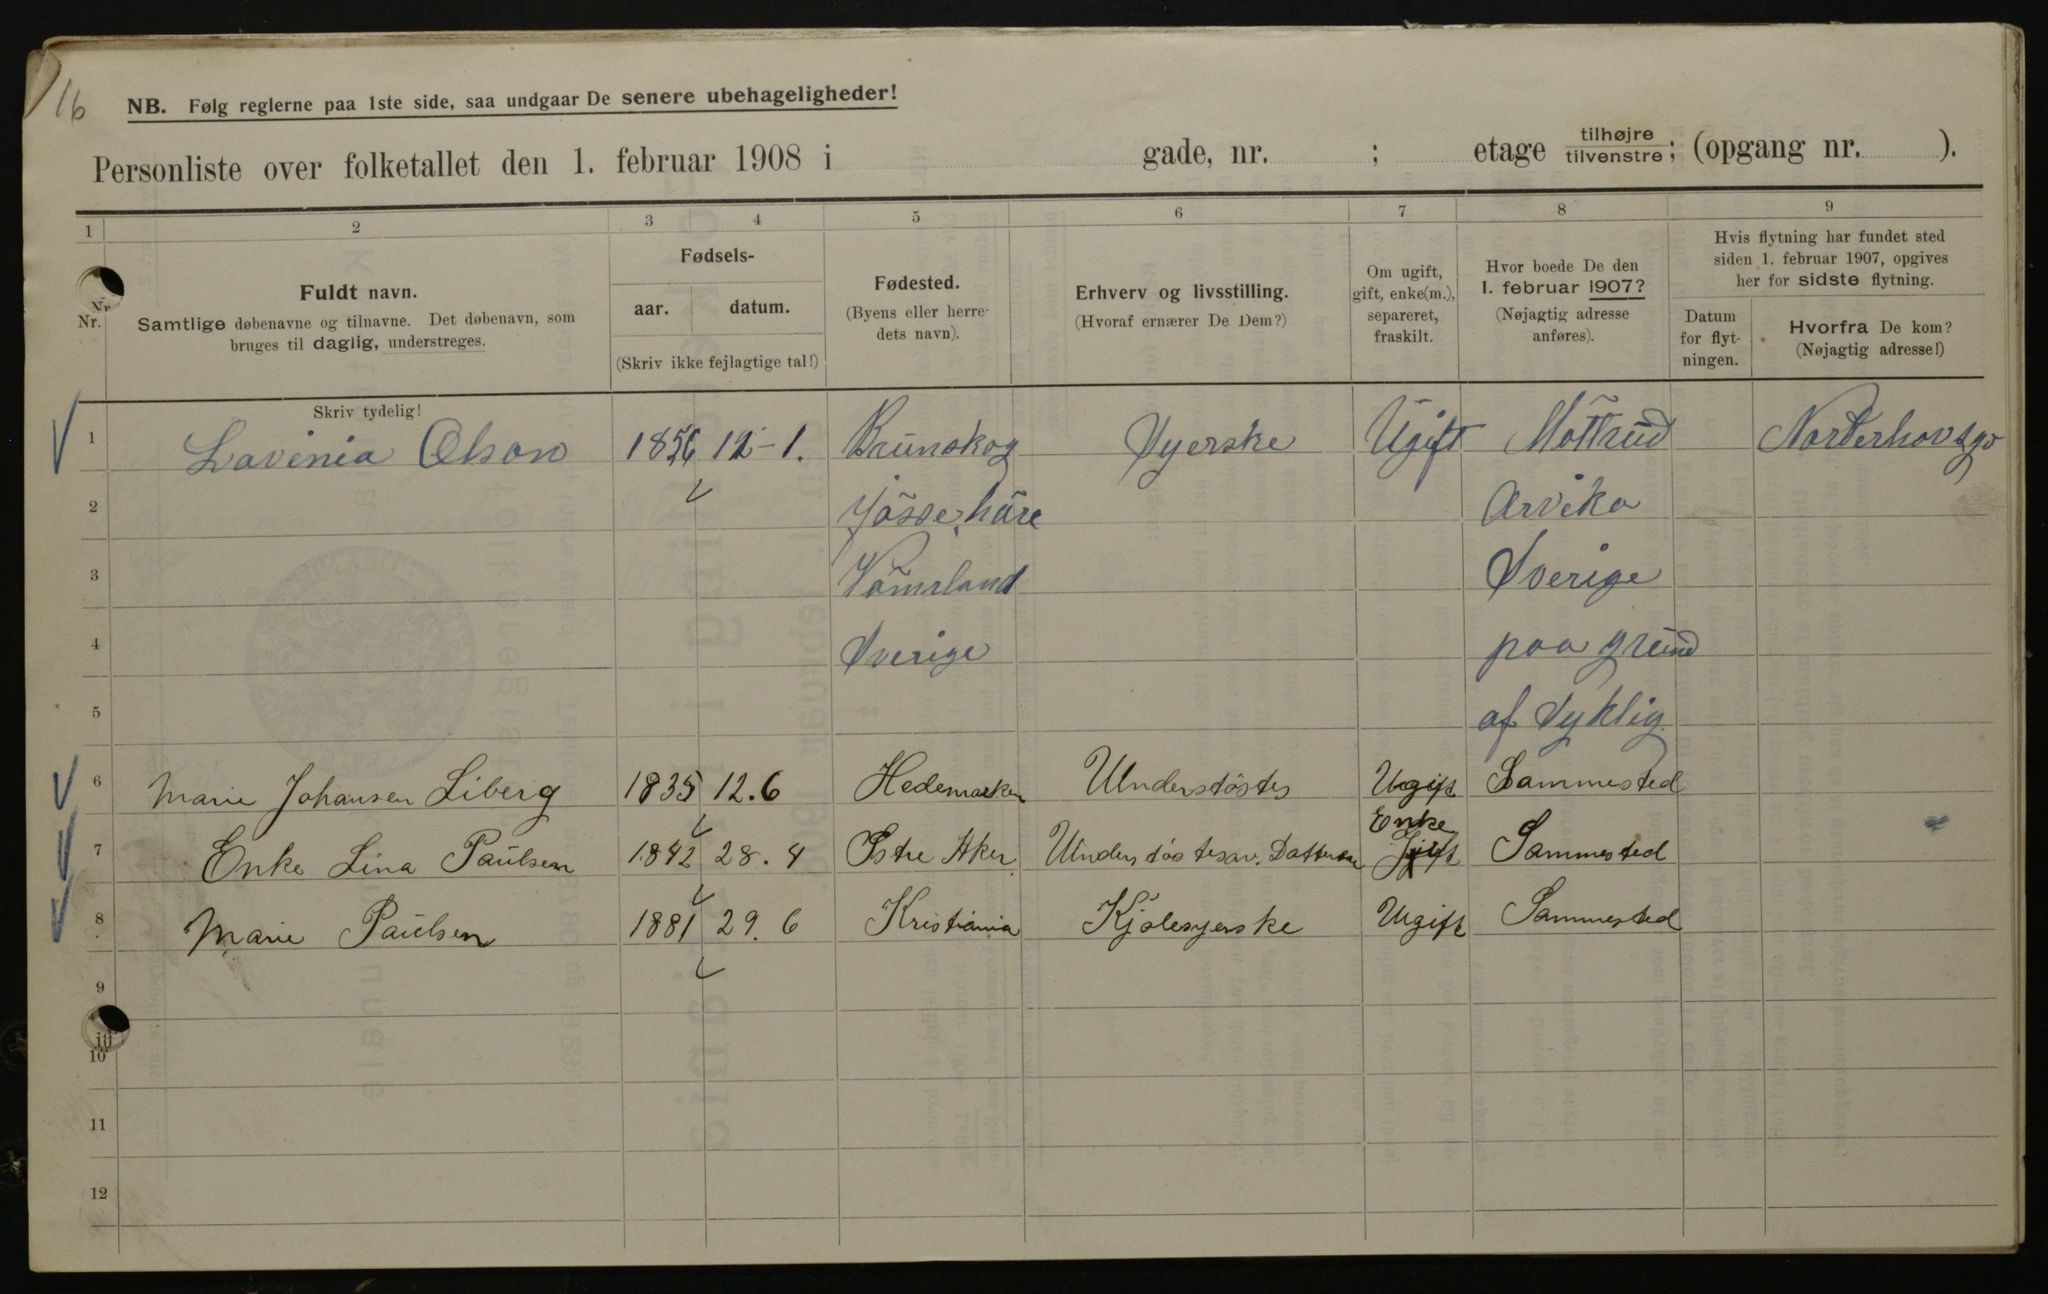 16
NB. Følg reglerne paa 1ste side, saa undgaar De senere ubehageligheder!
Personliste over folketallet den 1. februar 1908 i gade, nr. ; etage tilhøjre/tilvenstre; (opgang nr. ).
1 2 3 4 5 6 7 8 9
Nr.
Nr.
Fuldt navn.
Samtlige døbenavne og tilnavne. Det døbenavn, som
bruges til daglig, understreges.
Fødsels-
aar. datum.
(Skriv ikke fejlagtige tal!)
Fødested.
(Byens eller herre-
dets navn).
Erhverv og livsstilling.
(Hvoraf ernærer De Dem?)
Om ugift,
gift, enke(m.),
separeret,
fraskilt.
Hvor boede De den
1. februar 1907?
(Nøjagtig adresse
anføres).
Hvis flytning har fundet sted
siden 1. februar 1907, opgives
her for sidste flytning.
Datum
for flyt-
ningen.
Hvorfra De kom?
(Nøjagtig adresse!)
Skriv tydelig!
1 Lavinia Olson 1856 12-1. Brunskog Syerske Ugift Mottrud Norderhovsg
2 Jösse häre Arvika
3 Värmland Sverige
4 Sverige paa grund
5 af Syklig
6 Marie Johansen Liberg 1835 12.6 Hedemarken Understøstes Ugift Sammested
Enke
7 Enke Lina Paulsen 1842 28.4 Østre Aker Understøstes av. Datteren Gift Sammested
8 Marie Paulsen 1881 29.6 Kristiania Kjolesyerske Ugift Sammested
9
10
10
11
12